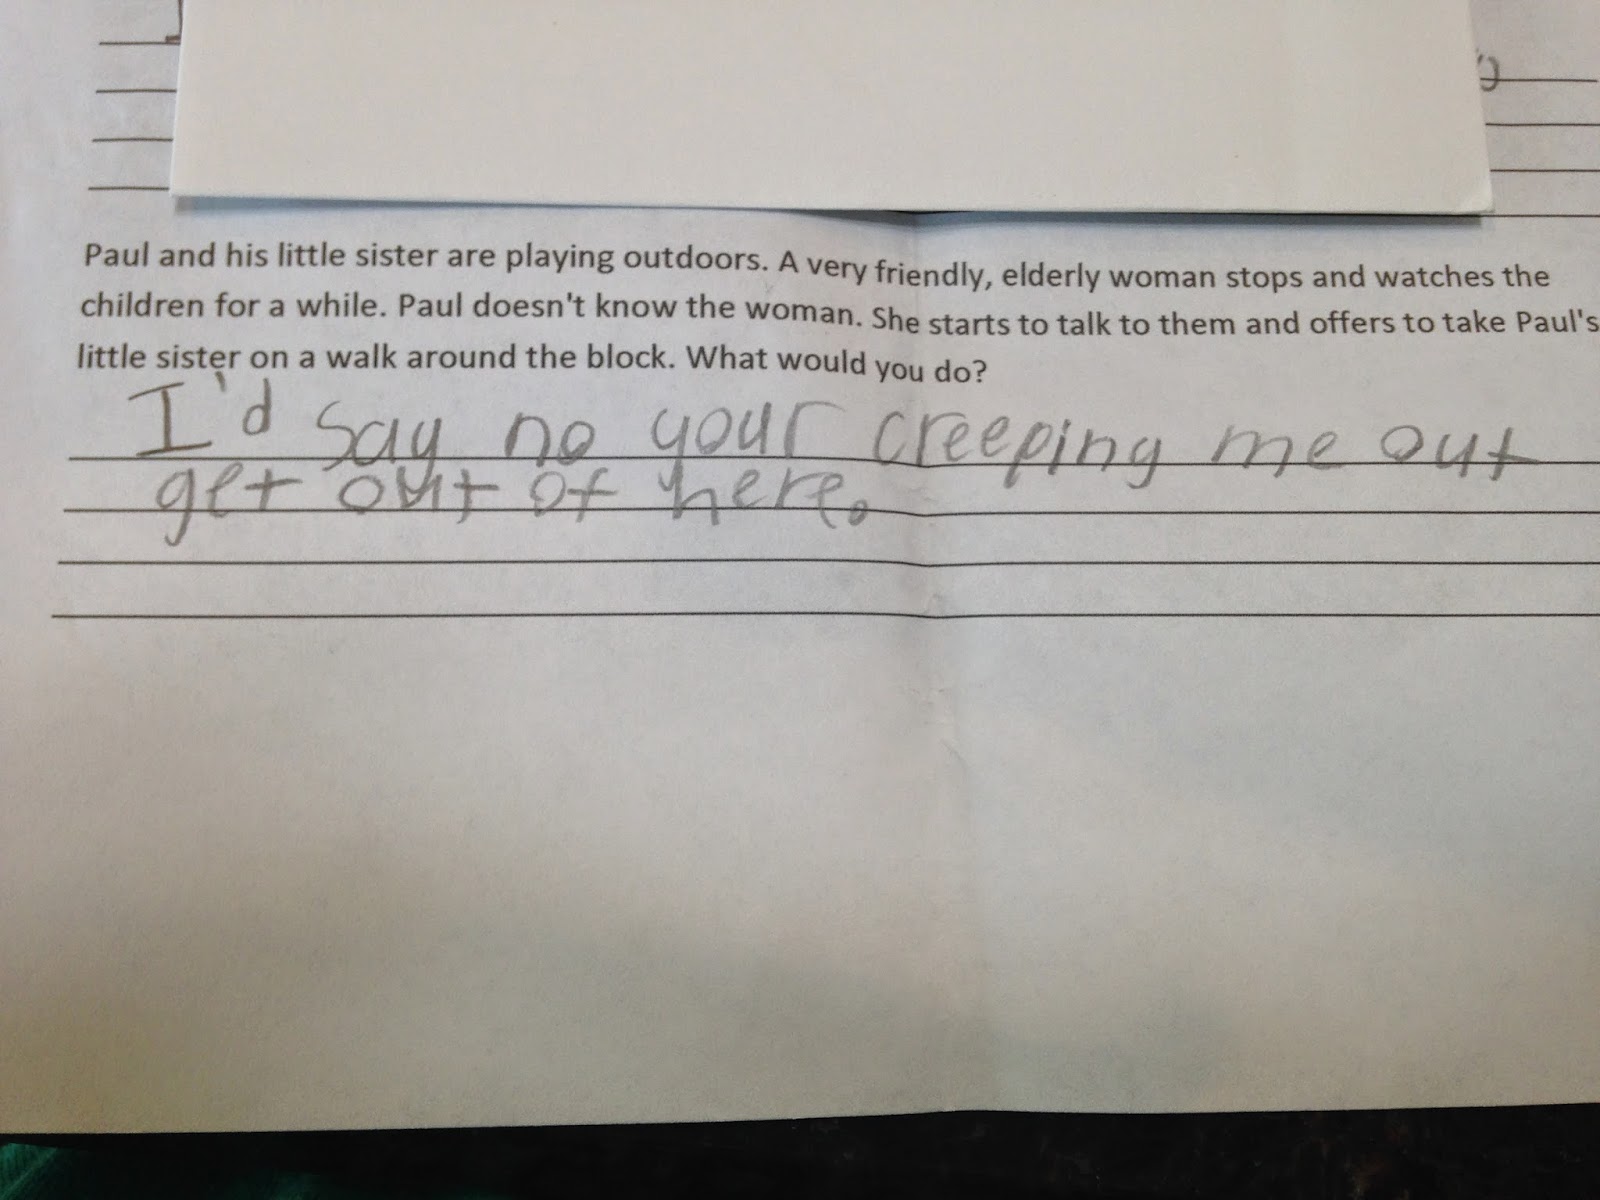 Paul and his little sister are playing outdoors. A very friendly, elderly woman stops and watches the
children for a while. Paul doesn't know the woman. She starts to talk to them and offers to take Paul's
little sister on a walk around the block. What would you do?
I'd say no your creeping me out
get out of here.